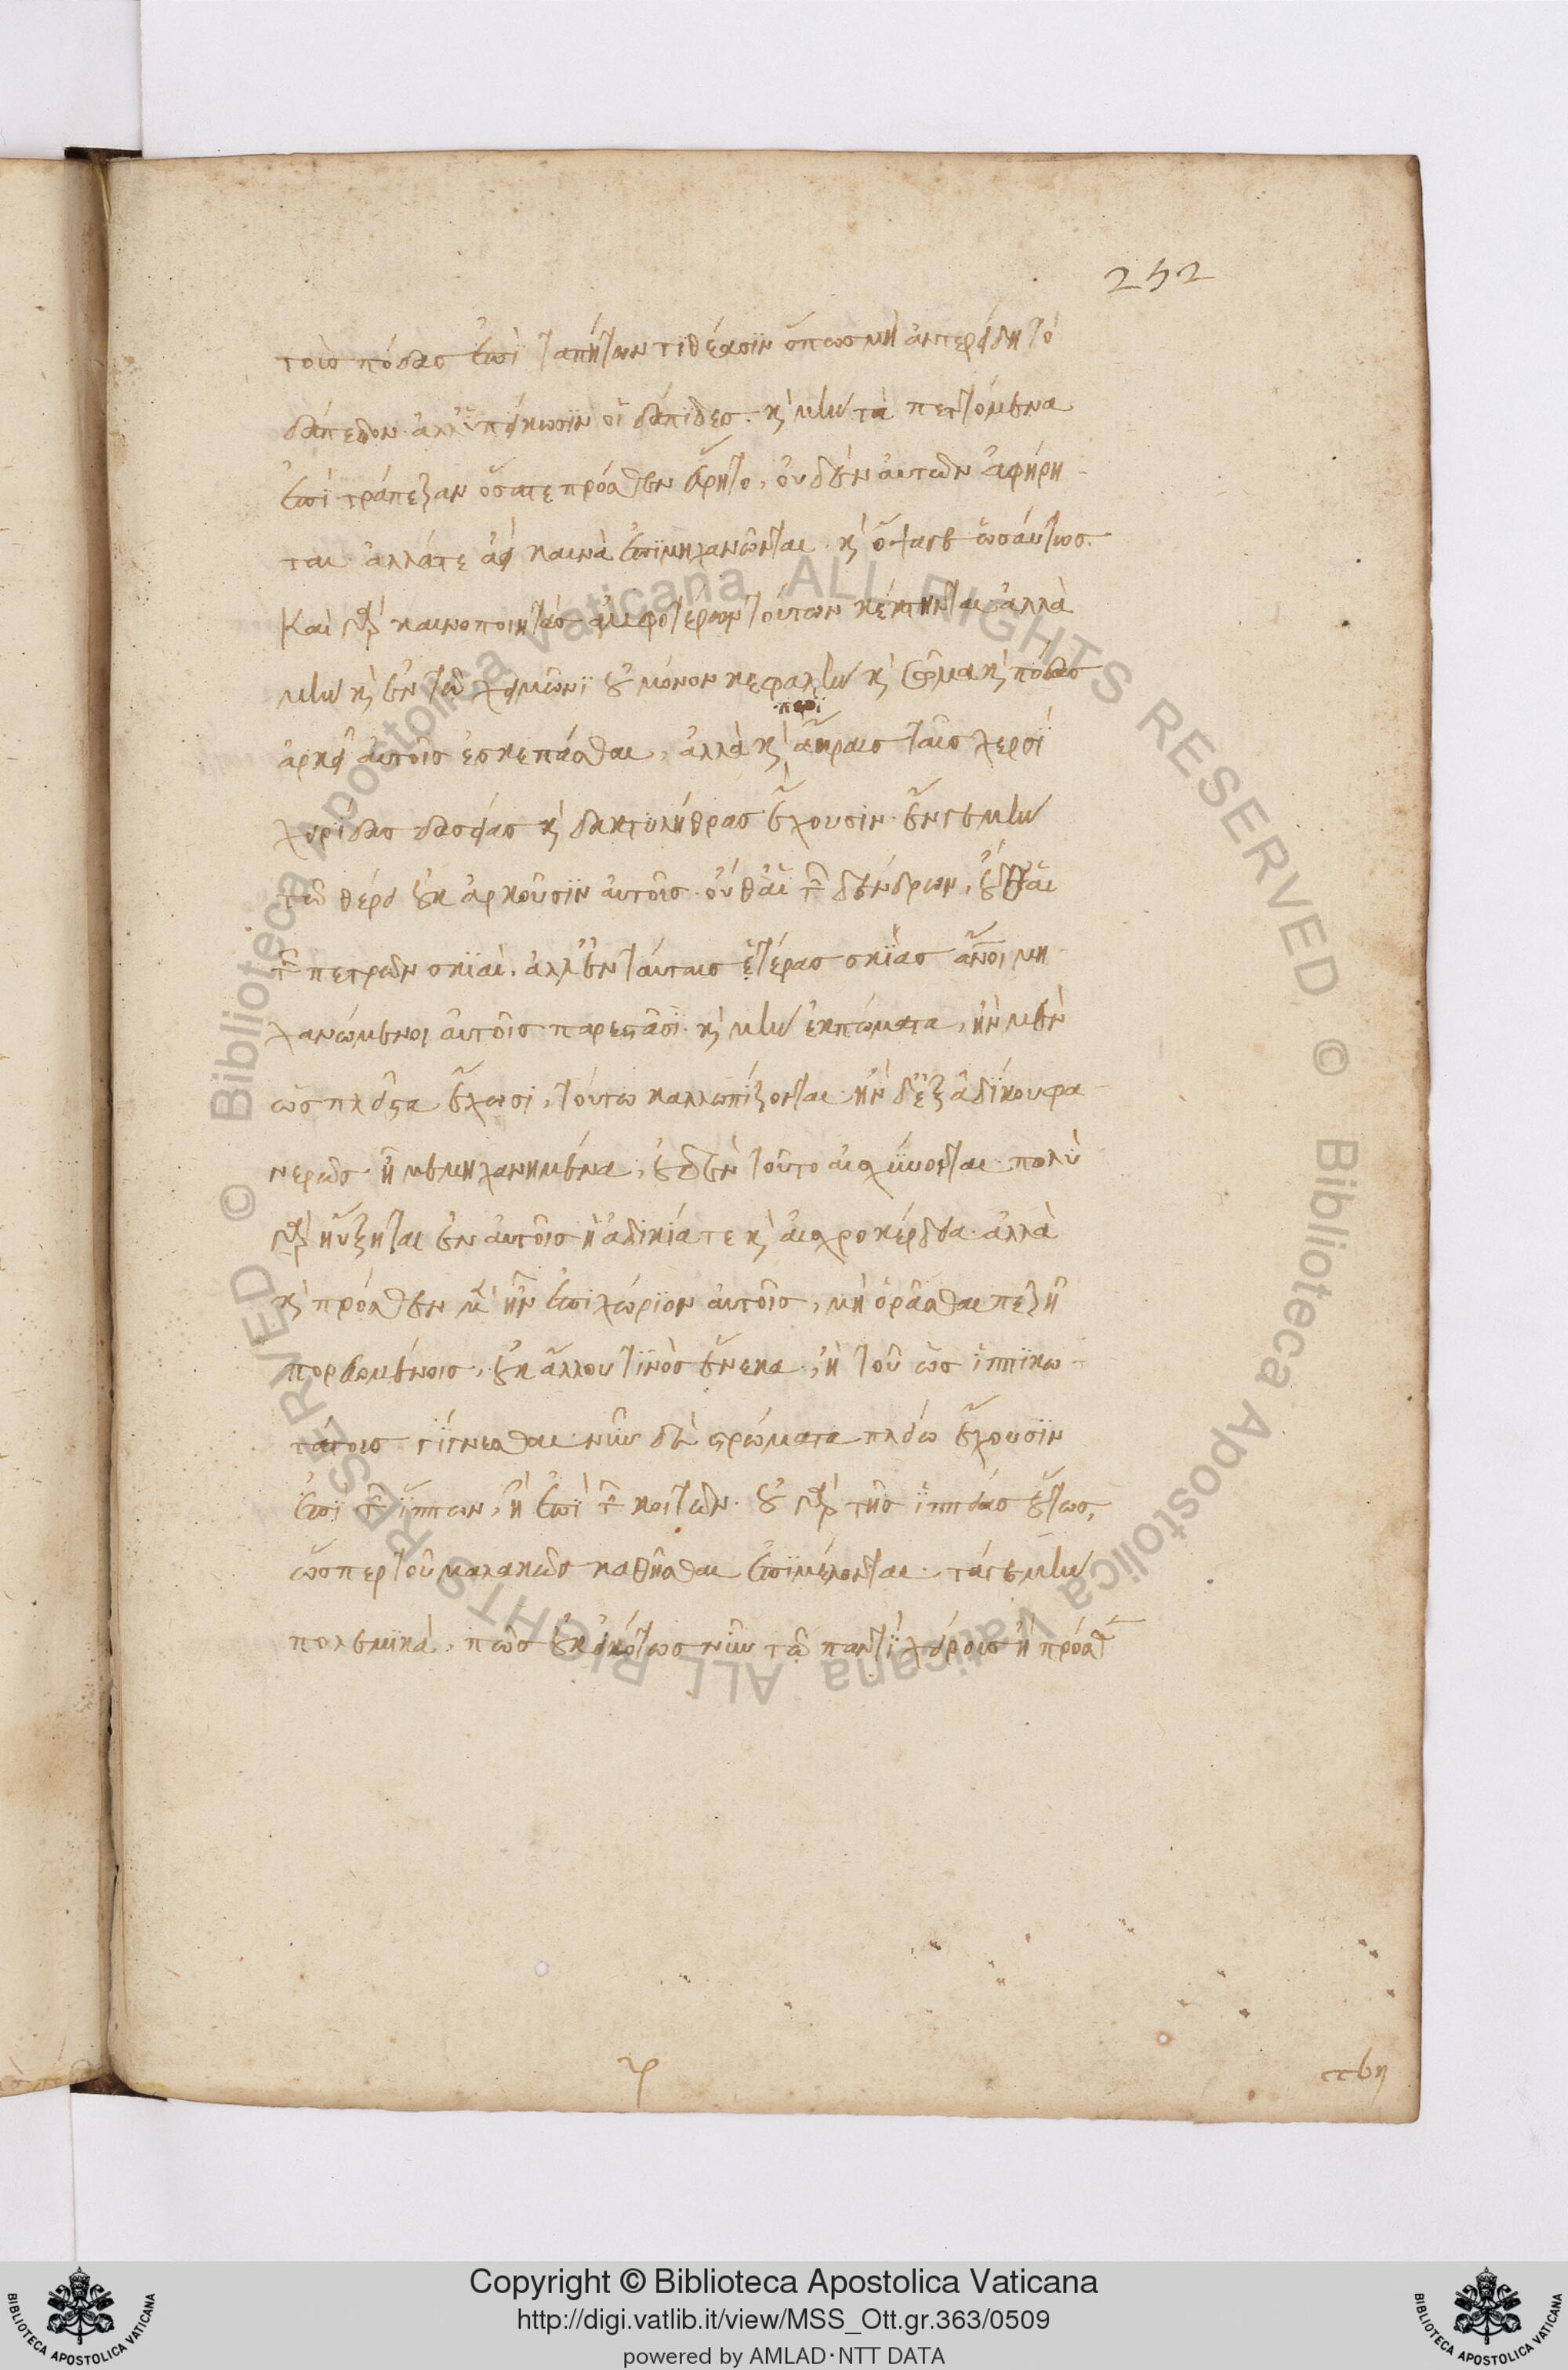 252
τοὺς πόδας ἐπὶ ταπήτων τιθέασϊν ὅπως μὴ ἀντερείδη τὸ
δάπεδον ἀλλ' ὑπείκωσϊν οἱ δάπιδες. κ μὴν τὰ πεττόμενα
ἐπὶ τράπεζαν ὅσατε πρόσθεν εὕρητο, οὐδὲν ἀυτῶν ἀφήρη
ται. ἀλλάτε ἀεὶ καινὰ ἐπϊμηχανῶνται. κ ὄψαγε ὡσάυτως.
Καὶ γὰρ καινοποιητὰς ἀμφοτέρων τούτων κέκτηνται. ἀλλὰ
μὴν κ ἐν τῶ χειμῶνϊ οὐ μόνον κεφαλὴν κ σῶμα κ πόδας
ἀρκεῖ ἀυτοῖς ἐσκεπάσθαι, ἀλλὰ κ περὶ ἄκραις ταῖς χερσϊ
χειρίδας δασείας κ δακτυλήθρας ἔχουσιν. ἔνγε μὴν
τῶ θέρει οὐκ ἀρκοῦσϊν ἀυτοῖς. οὐθ' αἱ τῶν δένδρων, οὔθ' αἱ
τῶν πετρῶν σκϊαὶ, ἀλλ' ἐν ταύταις ἑτέρας σκϊὰς ἄνοι μη
χανώμενοι ἀυτοῖς παρεστᾶσϊ. κ μὴν ἐκπώματα, ἢν μὲν
ὡς πλεῖστα ἔχωσι, τούτω καλλωπίζονται. ἢν δ' ἐξ ἀδίκου φα
νερῶς ἦ μεμηχανημένα, οὐδὲν τοῦτο αισχύνονται. πολὺ
γὰρ ηὔξηται ἐν ἀυτοῖς ἡ ἀδικία τε κ ἀισχροκέρδεια. ἀλλὰ
κ πρόσθεν μὲν ἦν ἐπιχώρϊον ἀυτοῖς, μὴ ὁρᾶσθαι πεζῆ
πορευομένοις, οὐκ ἄλλου τϊνὸς ἕνεκα, ἢ τοῦ ὡς ἱππϊκω
τάτοις γίγνεσθαι. νῦν δὲ στρώματα πλείω ἔχουσϊν
ἐπὶ τῶν ἵππων, ἢ ἐπὶ τῶν κοιτῶν. οὐ γὰρ τῆς ἱππείας οὕτως,
ὥσπερ τοῦ μαλακῶς καθῆσθαι ἐπϊμέλονται. τάγε μὴν
πολεμϊκὰ, πῶς οὐκ εἰκότως νῦν τῶ παντὶ χείροις ἢ πρόσθ